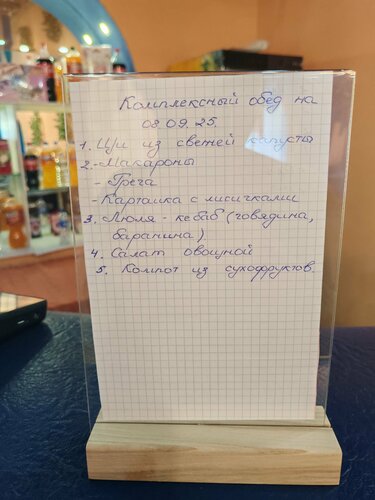 Комплексный обед на
08.09.25.
1. Щи из свежей капусты
2. - Макароны
- Греча
- Картошка с лисичками
3. Люля - кебаб (говядина,
баранина)
4. Салат овощной
5. Компот из сухофруктов.